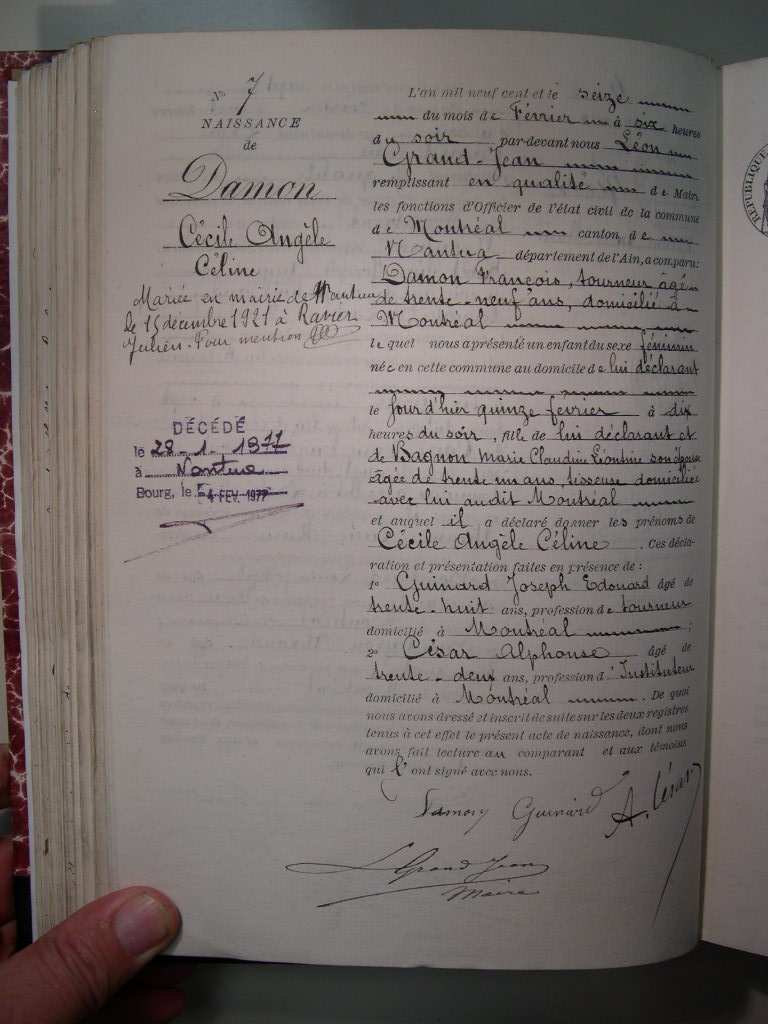 N° 7
NAISSANCE
de
Damon
Cécile Angèle
Céline
Mariée en mairie de Nantua
le 15 décembre 1921 à Ravier
Julien. Pour mention
DÉCÉDÉ
le 28-1-1977
à Nantua
Bourg, le 4 FEV. 1977
L'an mil neuf cent et le seize
du mois de Février à six heures
du soir par-devant nous Léon
Grand-Jean
remplissant en qualité de Maire
les fonctions d'Officier de l'état civil de la commune
de Montréal canton de
Nantua département de l'Ain, a comparu:
Damon François, tourneur âgé
de trente-neuf ans, domicilié à
Montréal
lequel nous a présenté un enfant du sexe féminin
née en cette commune au domicile de lui déclarant
le jour d'hier quinze fevrier à dix
heures du soir, fille de lui déclarant et
de Bagnon Marie Claudine Léontine son épouse
âgée de trente un ans, tisseuse domiciliée
avec lui audit Montréal
et auquel il a déclaré donner les prénoms de
Cécile Angèle Céline. Ces décla-
ration et présentation faites en présence de:
1° Guinard Joseph Edouard âgé de
trente-huit ans, profession de tourneur
domicilié à Montréal;
2° César Alphonse âgé de
trente-deux ans, profession d'Instituteur
domicilié à Montréal. De quoi
nous avons dressé et inscrit de suite sur les deux registres
tenus à cet effet le présent acte de naissance, dont nous
avons fait lecture au comparant et aux témoins
qui l'ont signé avec nous.
Damon Guinard A. César
L Grand Jean
Maire
RÉPUBLIQUE